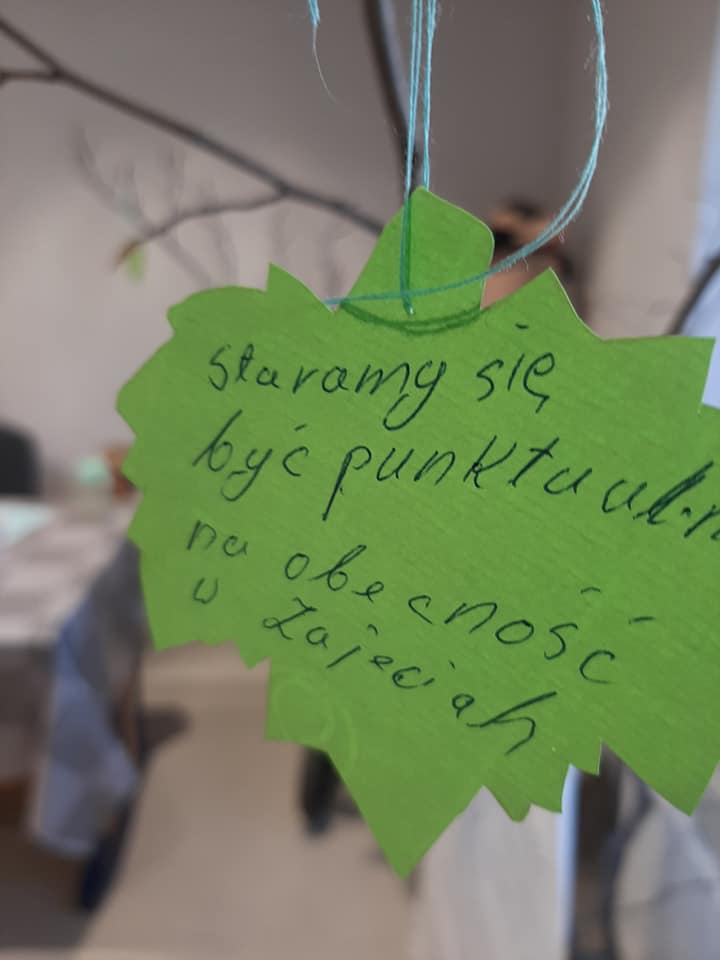 staramy się
być punktualn
na obecność
w zajeciah